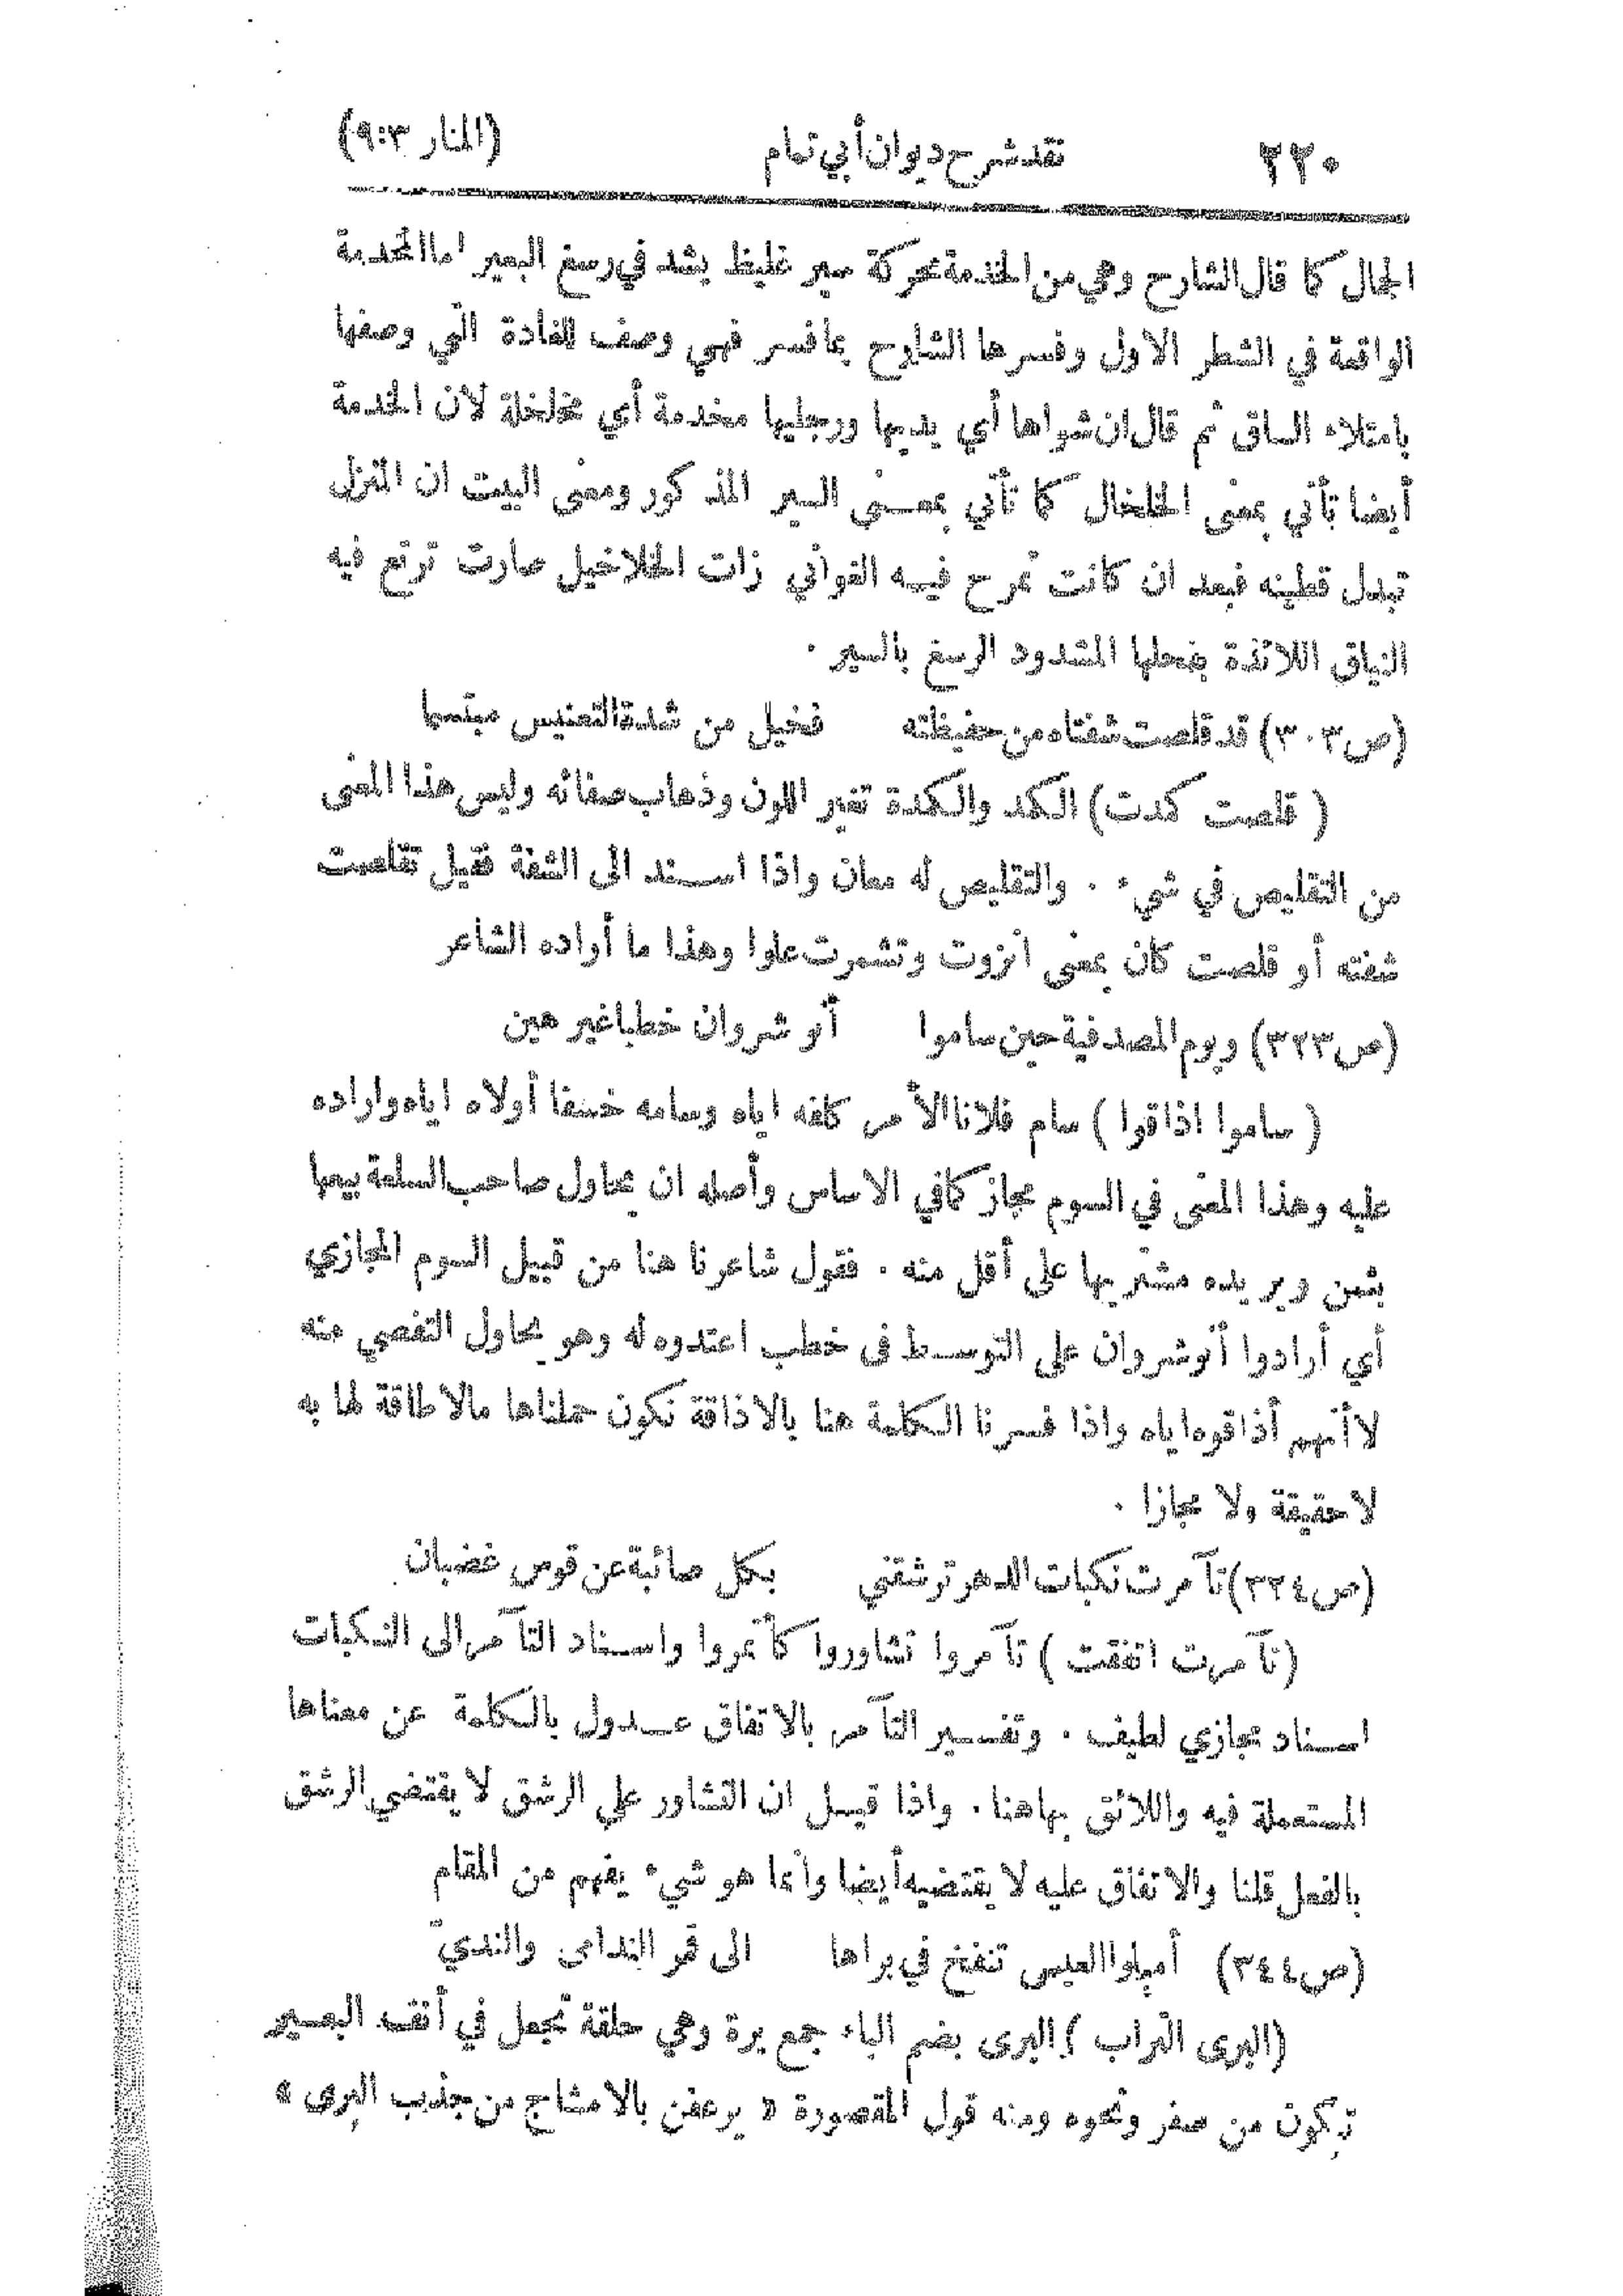 ٢٢٠ نقد شرح ديوان أبي تمام (المنار ٣:٩)
الجمال كما قال الشارح وهي من الخدمة محركة سير غليظ يشد في رسغ البعير اما المخدمة
الواقعة في الشطر الاول وفسرها الشارح بما فسر فهي وصف للغادة التي وصفها
بامتلاء الساق ثم قال ان شواها أي يديها ورجليها مخدمة أي مخلخلة لان الخدمة
أيضا تأتي بمعنى الخلخال كما تأتي بمعنى السير المذكور ومعنى البيت ان المنزل
تبدل قطينه فبعد ان كانت تمرح فيه الغواني ذات الخلاخيل صارت ترتع فيه
النياق اللائذة بفحلها المشدود الرسغ بالسير .
(ص٣٠٣) قد قلصت شفتاه من حفيظته فخيل من شدة التعنيس مبتسما
( قلصت كمدت) الكمد والكمدة تغير اللون وذهاب صفائه وليس هذا المعنى
من التقليص في شيء . والتقليص له معان واذا اسند الى الشفة فقيل تقلصت
شفته أو قلصت كان بمعنى انزوت وتشمرت علوا وهذا ما أراده الشاعر
(ص٣٢٣) ويوم المصدفية حين ساموا أنو شروان خطبا غير هين
( ساموا اذاقوا ) سام فلانا الأمر كلفه اياه وسامه خسفا أولاه اياه واراده
عليه وهذا المعنى في السوم مجاز كما في الاساس وأصله ان يحاول صاحب السلعة بيعها
بثمن ويريده مشتريها على أقل منه . فقول شاعرنا هنا من قبيل السوم المجازي
أي أرادوا أنوشروان على التوسط في خطب اعتدوه له وهو يحاول التفصي منه
لا أنهم أذاقوه اياه واذا فسرنا الكلمة هنا بالاذاقة نكون حملناها مالا طاقة لها به
لا حقيقة ولا مجازا .
(ص٣٢٤) تآمرت نكبات الدهر ترشقني بكل صائبة عن قوس غضبان
(تآمرت اتفقت ) تآمروا تشاوروا كأتمروا واسناد التآمر الى النكبات
اسناد مجازي لطيف . وتفسير التآمر بالاتفاق عدول بالكلمة عن معناها
المستعملة فيه واللائق بها هنا . واذا قيل ان التشاور على الرشق لا يقتضي الرشق
بالفعل قلنا والاتفاق عليه لا يقتضيه أيضا وانما هو شيء يفهم من المقام
(ص٣٤٤) أميلوا العيس تنفخ في براها الى قمر الندامى والنديّ
(البرى التراب ) البرى بضم الباء جمع برة وهي حلقة تجعل في أنف البعير
تكون من صفر ونحوه ومنه قول المقصورة « يرعفن بالامشاج من جذب البرى »